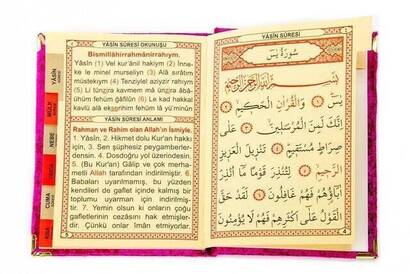 YÂSÎN SÛRESİ OKUNUŞU
Bismillâhirrahmânirrahîym.
Yâsîn (1) Vel kur'ânil hakiym (2) İnne-
ke le minel murseliyn (3) Alâ sırâtım
müstekiym (4) Tenziylel aziyzir rahıym
(5) Li tünzira kavmem mâ ünzira âbâ-
ühum fehüm ğafilûn (6) Le kad hakkal
kavlü alâ ekserihim fehüm lâ yü'minûn
YÂSÎN SÛRESİ ANLAMI
Rahman ve Rahim olan Allah'ın İsmiyle.
1. Yâsîn, 2. Hikmet dolu Kur'an hakkı
için, 3. Sen şüphesiz peygamberler-
densin. 4. Dosdoğru yol üzerindesin.
5. (Bu Kur'an) Gâlip ve çok merha-
metli Allah tarafından indirilmiştir. 6.
Babaları uyarılmamış, bu yüzden
kendileri de gaflet içinde kalmış bir
toplumu uyarman için indirilmiş-
tir. 7. Yemin olsun ki onların çoğu
gafletlerinin cezasını hak etmişler-
dir. Çünkü onlar îman etmiyorlar.
YÂSÎN
MÜLK
NEBE
CUMA
YÂSÎN SÛRESİ
سُورَةُ يٰسٓ
بِسْمِ اللّٰهِ الرَّحْمٰنِ الرَّحِيمِ
يٰسٓ ﴿١﴾ وَالْقُرْاٰنِ الْحَكِيمِ ﴿٢﴾
اِنَّكَ لَمِنَ الْمُرْسَلِينَ ﴿٣﴾ عَلٰى
صِرَاطٍ مُسْتَقِيمٍ ﴿٤﴾ تَنْزِيلَ الْعَزِيزِ
الرَّحِيمِ ﴿٥﴾ لِتُنْذِرَ قَوْمًا مَٓا اُنْذِرَ
اٰبَٓاؤُهُمْ فَهُمْ غَافِلُونَ ﴿٦﴾ لَقَدْ حَقَّ
الْقَوْلُ عَلٰٓى اَكْثَرِهِمْ فَهُمْ لَا يُؤْمِنُونَ
4